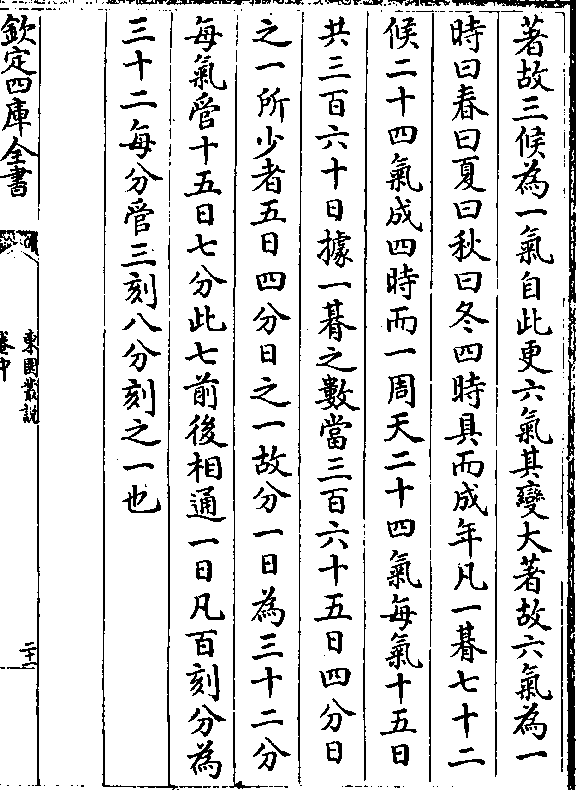 著故三候為一氣自此更六氣其變大著故六氣為一
時曰春曰夏曰秋曰冬四時具而成年凡一朞七十二
候二十四氣成四時而一周天二十四氣每氣十五日
共三百六十日據一朞之數當三百六十五日四分日
之一所少者五日四分日之一故分一日為三十二分
每氣管十五日七分此七前後相通一日凡百刻分為
三十二每分管三刻八分刻之一也
欽定四庫全書
東園叢說
卷中
二十二